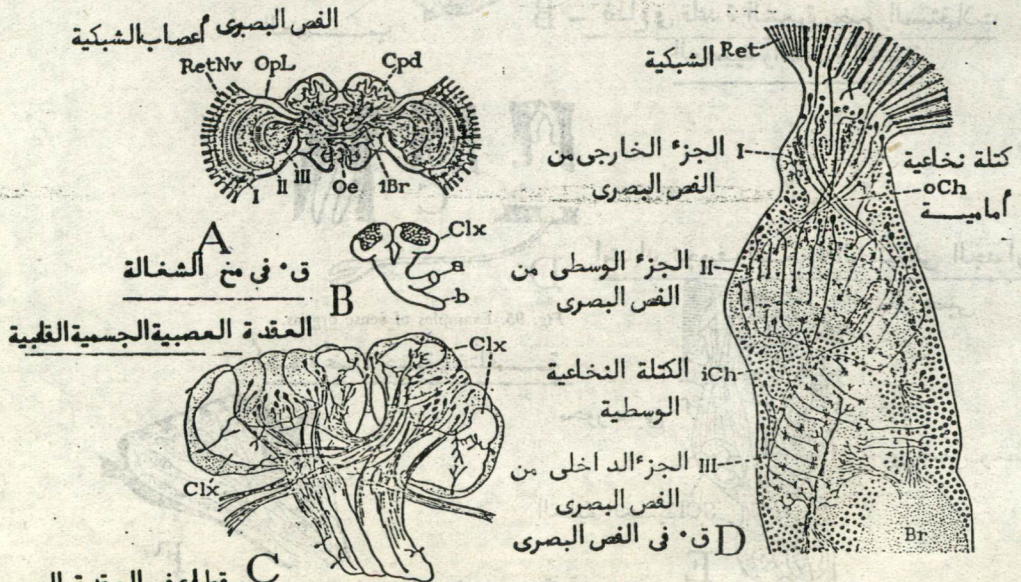 الفص البصرى أعصاب الشبكية
RetNv OpL Cpd
I II III Oe 1Br
A
ق. فى مخ الشغالة
B
Clx
a
b
العقدة العصبية الجسمية القلبية
Clx
Clx
C
الشبكية Ret
I الجزء الخارجى من
الفص البصرى
كتلة نخاعية
oCh
أمامية
II الجزء الوسطى من
الفص البصرى
الكتلة النخاعية iCh
الوسطية
III الجزء الداخلى من
الفص البصرى
ق. فى الفص البصرى D
Br